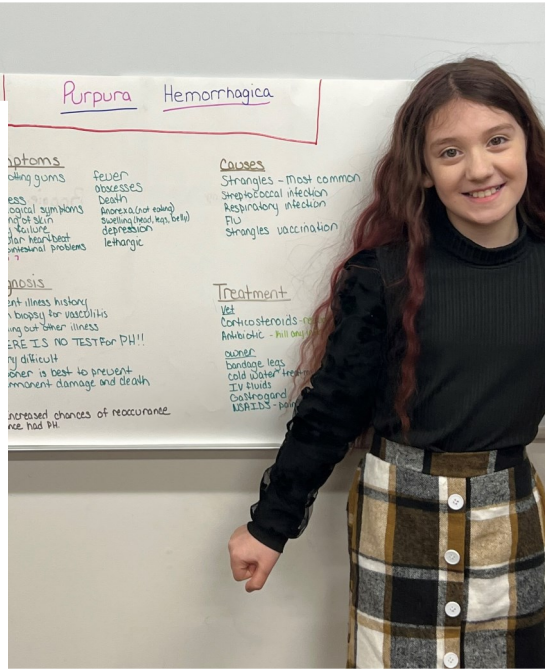 Purpura Hemorrhagica
ptoms
gums
ess
ogical symptoms
of skin
failure
lar heartbeat
intestinal problems
?
fever
abscesses
Death
Anorexa (not eating)
swelling (head, legs, belly)
depression
lethargic
Causes
Strangles - most common
Streptococcal infection
Respiratory infection
Flu
Strangles vaccination
gnosis
ent illness history
biopsy for vasculitis
ing out other illness
ERE IS NO TEST For PH!!
ry difficult
oner is best to prevent
rmanent damage and death
increased chances of reoccurance
nce had PH.
Treatment
Vet
Corticosteroids -
Antibiotic - kill any
owner:
bandage legs
cold water treatm
IV fluids
Gastrogard
NSAIDS - pain